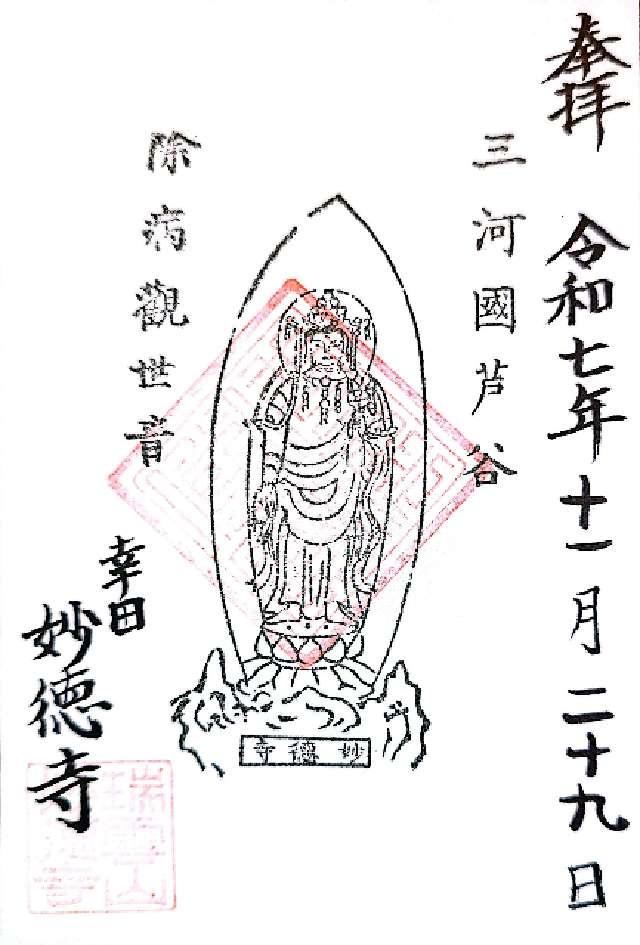 奉拝
令和七年十一月二十九日
三河國芦谷
除病觀世音
幸田
妙徳寺
妙德寺